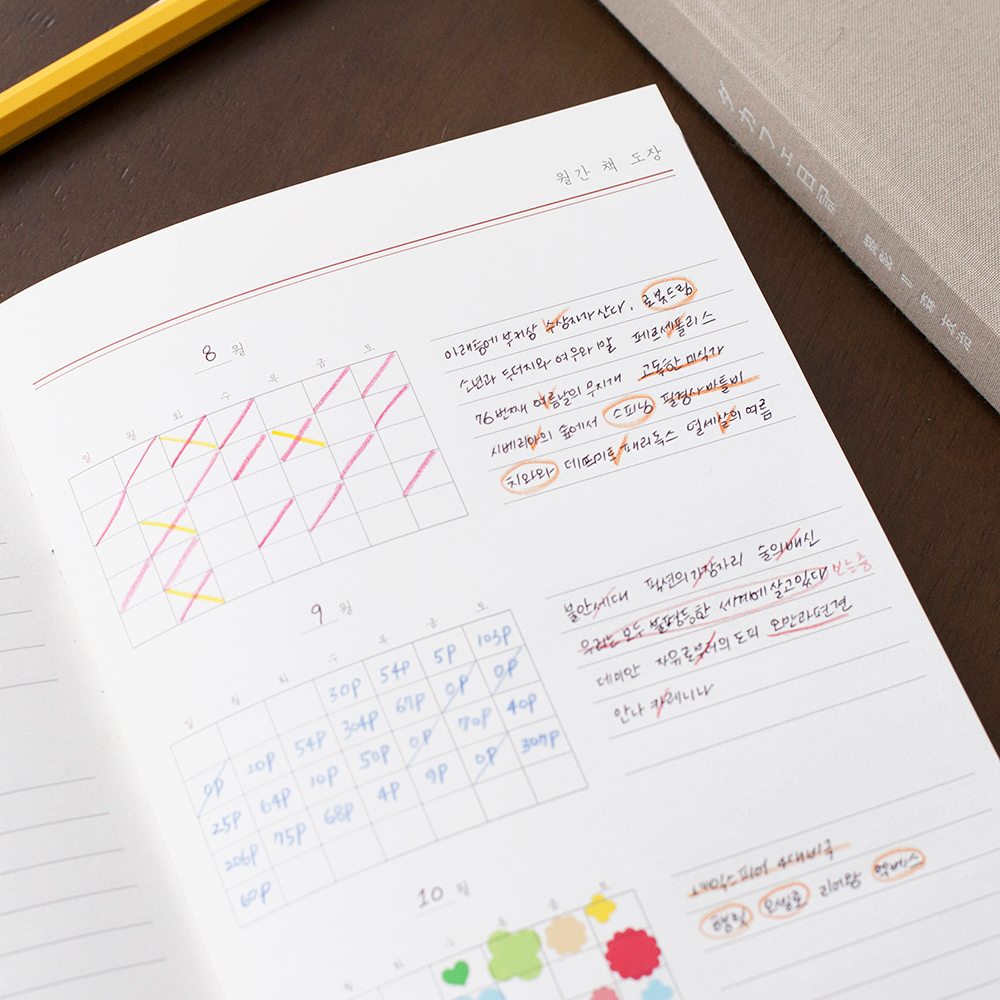 월간 책 도장
ダカフェ日記
8 월
일 월 화 수 목 금 토
아래층에 부커상 수상자가 산다. 로봇드림
소년과 두더지와 여우와 말 페르세폴리스
76번째 여름날의 무지개 고독한 미식가
시베리아의 숲에서 스피닝 필경사 바틀비
치와와 데프미토 패러독스 열세살의 여름
9 월
일 월 화 수 목 금 토
30P 54P 5P 103P
0P 20P 54P 304P 67P 0P 0P
25P 64P 10P 50P 0P 70P 40P
206P 75P 68P 4P 9P 0P 307P
60P
불안세대 픽션의 가장자리 술의 배신
우리는 모두 불평등한 세계에 살고 있다 보는중
데미안 자유로부터의 도피 오만과 편견
안나 카레니나
10 월
월 화 수 목 금 토
셰익스피어 4대비극
햄릿 오셀로 리어왕 맥베스